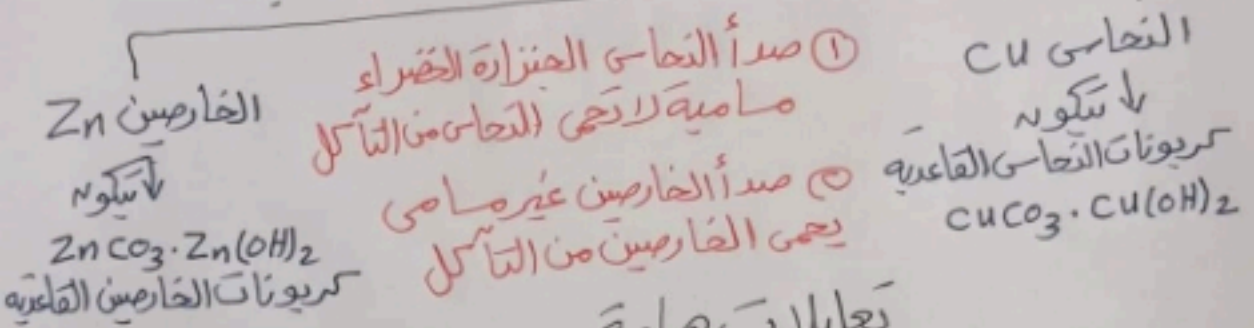 النحاس CU
يتكون
كربونات النحاس القاعدية
CUCO3 . CU(OH)2
① صدأ النحاس الجنزارة الخضراء
مسامية لا تحمى النحاس من التآكل
② صدأ الخارصين غير مسامى
يحمى الخارصين من التآكل
الخارصين Zn
يتكون
ZnCO3 . Zn(OH)2
كربونات الخارصين القاعدية
تعليلات هامة